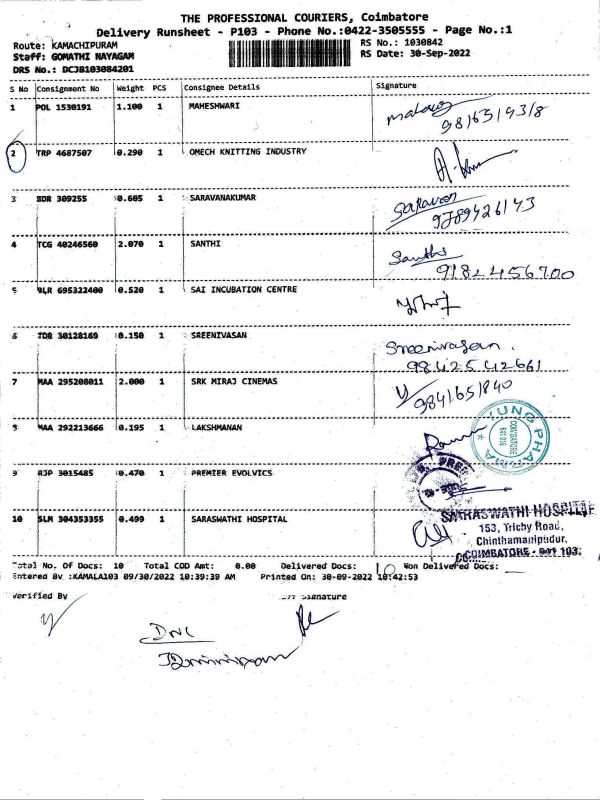 THE PROFESSIONAL COURIERS, Coimbatore
Delivery Runsheet - P103 - Phone No.:0422-3505555 - Page No.:1
Route: KAMACHIPURAM RS No.: 1030842
Staff: GOMATHI NAYAGAM RS Date: 30-Sep-2022
DRS No.: DCJB103084201
S No Consignment No Weight PCS Consignee Details Signature
1 POL 1530191 1.100 1 MAHESHWARI
2 TRP 4687507 0.290 1 OMECH KNITTING INDUSTRY
3 BDR 309255 0.605 1 SARAVANAKUMAR
Saravan
9789426143
4 TCG 40246560 2.070 1 SANTHI
Santhi
9182456700
5 BLR 695322400 0.520 1 SAI INCUBATION CENTRE
6 TDB 30128169 0.150 1 SREENIVASAN
Sreenivasan.
9842542661
7 MAA 295208011 2.000 1 SRK MIRAJ CINEMAS
9841651840
8 MAA 292213666 0.195 1 LAKSHMANAN
YUNG PHARMA
COIMBATORE
9 RJP 3015485 0.470 1 PREMIER EVOLVICS
10 SLM 304353355 0.499 1 SARASWATHI HOSPITAL
SARASWATHI HOSPITAL
153, Trichy Road,
Chinthamanipudur,
COIMBATORE - 641 103.
Total No. Of Docs: 10 Total COD Amt: 0.00 Delivered Docs: 10 Non Delivered Docs: -
Entered By :KAMALA103 09/30/2022 10:39:39 AM Printed On: 30-09-2022 10:42:53
Verified By Signature